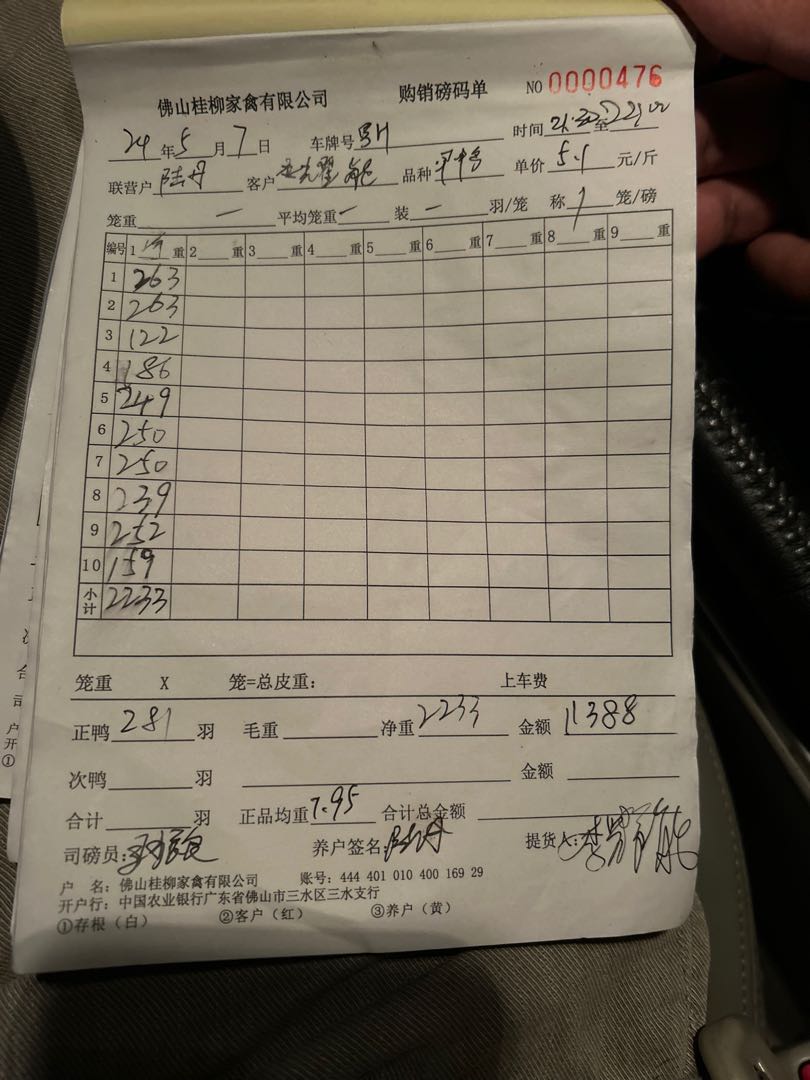 佛山桂柳家禽有限公司 购销磅码单 NO 0000476
24年5月7日 车牌号 时间 21:30至22:00
联营户 陆丹 客户 能 品种 单价 5.1 元/斤
笼重 — 平均笼重 — 装 — 羽/笼 称 1 笼/磅
编号 1 重 2 重 3 重 4 重 5 重 6 重 7 重 8 重 9 重
1 263
2 263
3 122
4 186
5 249
6 250
7 250
8 239
9 252
10 159
小计 2233
笼重 X 笼=总皮重: 上车费
正鸭 281 羽 毛重 净重 2233 金额 11388
次鸭 羽 金额
合计 羽 正品均重 7.95 合计总金额
司磅员: 养户签名: 陆丹 提货人:
户 名: 佛山桂柳家禽有限公司 账号: 444 401 010 400 169 29
开户行: 中国农业银行广东省佛山市三水区三水支行
①存根(白) ②客户(红) ③养户(黄)